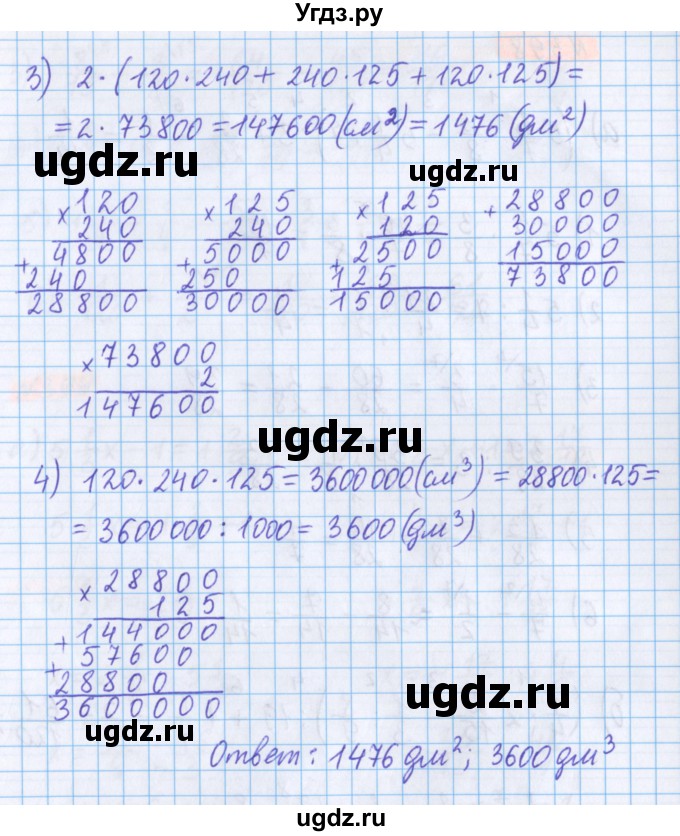 Угдз.ру
3) 2·(120·240+240·125+120·125)=
=2·73800=147600(см²)=1476(дм²)
ugdz.ru ugdz.ru
×120
240
+4800
240
28800
×125
240
+5000
250
30000
×125
120
+2500
125
15000
+28800
30000
15000
73800
×73800
2
147600
ugdz.ru
4) 120·240·125=3600000(см³)=28800·125=
=3600000:1000=3600(дм³)
×28800
125
+144000
+57600
28800
3600000
ugdz.ru
ugdz.ru
Ответ: 1476 дм²; 3600 дм³
ugdz.ru